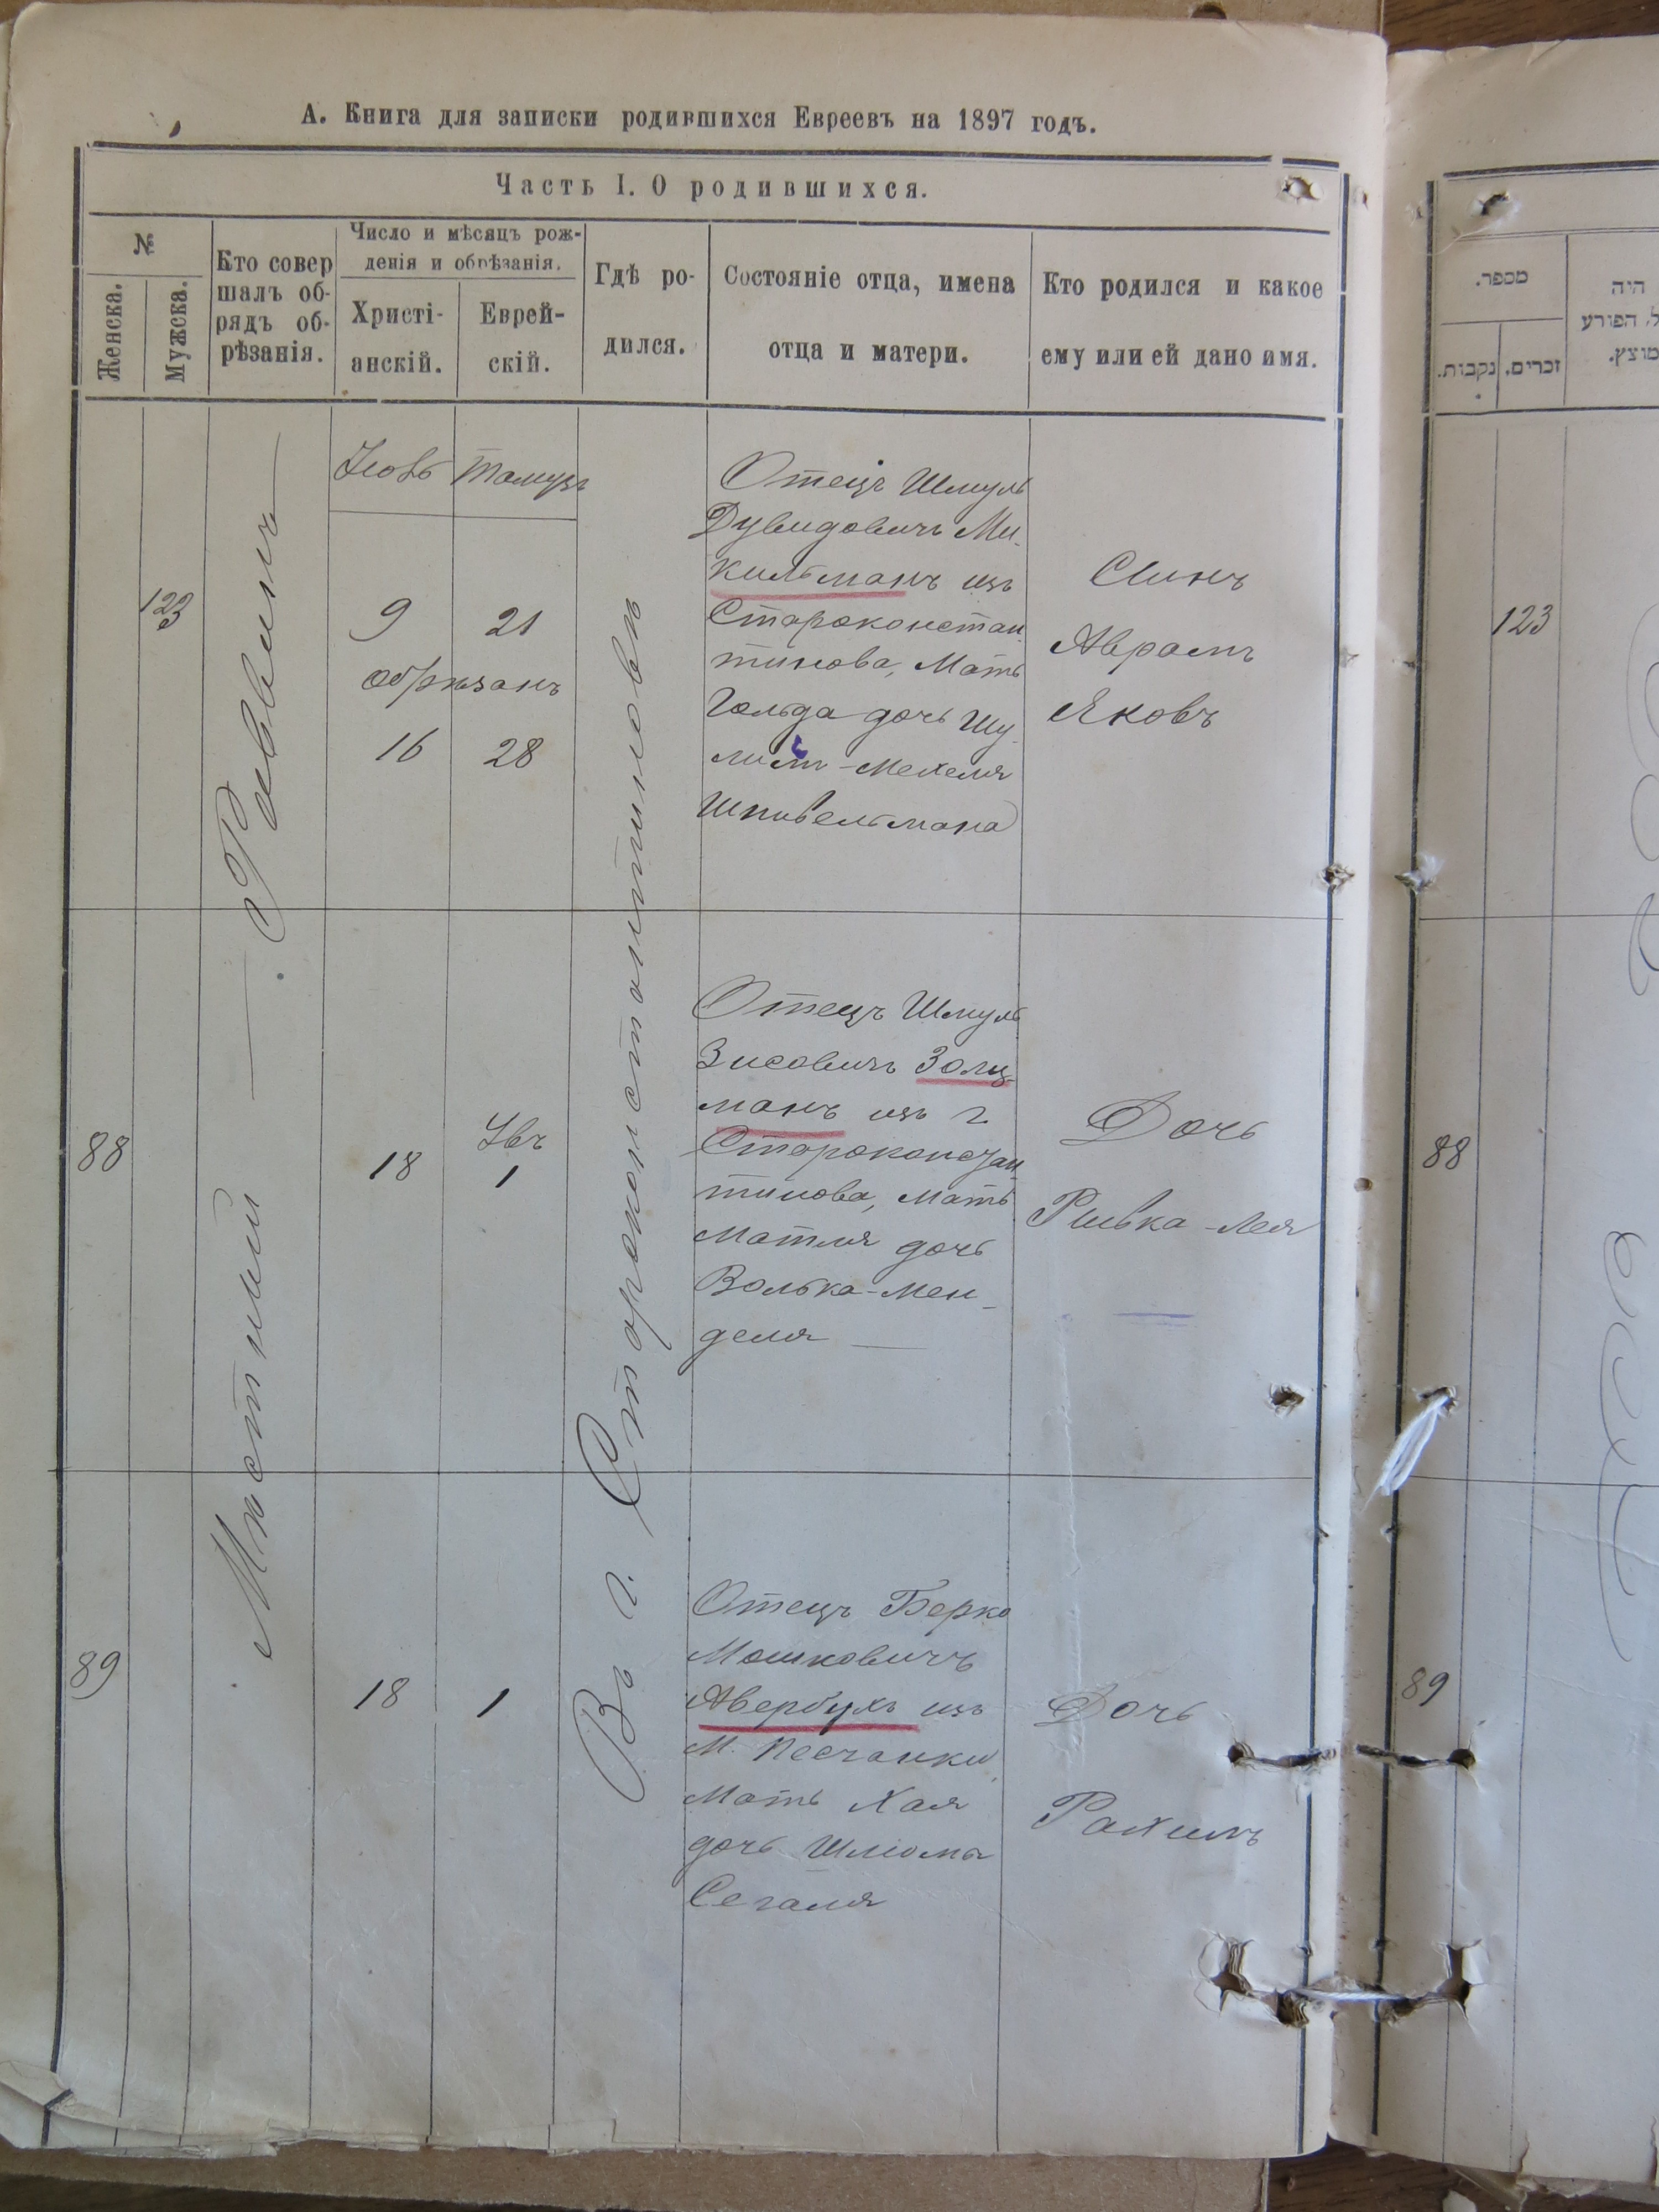 А. Книга для записки родившихся Евреевъ на 1897 годъ.
Часть I. О родившихся.
№
Женска.
Мужска.
Кто совер
шалъ об-
рядъ об-
рѣзанія.
Число и мѣсяцъ рож-
денія и обрѣзанія.
Христі-
анскій.
Еврей-
скій.
Гдѣ ро-
дился.
Состояніе отца, имена
отца и матери.
Кто родился и какое
ему или ей дано имя.
Мѣстный — Раввинъ —
Въ г. Староконстантиновѣ
123
Іюль
Тамузъ
9
21
обрѣзанъ
16
28
Отецъ Шмуль
Дувидовичъ Ми-
кильманъ изъ
Староконстан
тинова, Мать
Гольда дочь Шу-
Мехеля
Шпивельмана
Сынъ
Аврамъ
Яковъ
88
18
1
Отецъ Шмуль
Зисовичъ Золц-
манъ изъ г.
Староконстан
тинова, Мать
Матля дочь
Волько-Мен-
деля —
Дочь
Ривка-Лея
89
18
1
Отецъ Берко
Мошковичъ
Авербухъ изъ
М. Песчанки,
Мать Хая
дочь Шлиома
Сегаля
Дочь
Рахиль
מספר.
נקבות.
זכרים.
היה
הפורע
מוצץ.
123
88
89